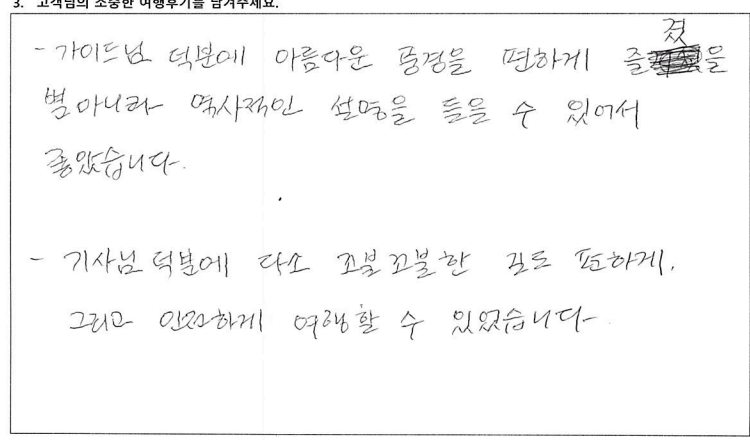 3. 고객님의 소중한 여행후기를 남겨주세요.
- 가이드님 덕분에 아름다운 풍경을 편하게 즐겼을
뿐 아니라 역사적인 설명을 들을 수 있어서
좋았습니다.
- 기사님 덕분에 다소 꼬불꼬불한 길도 편하게,
그리고 안전하게 여행할 수 있었습니다.